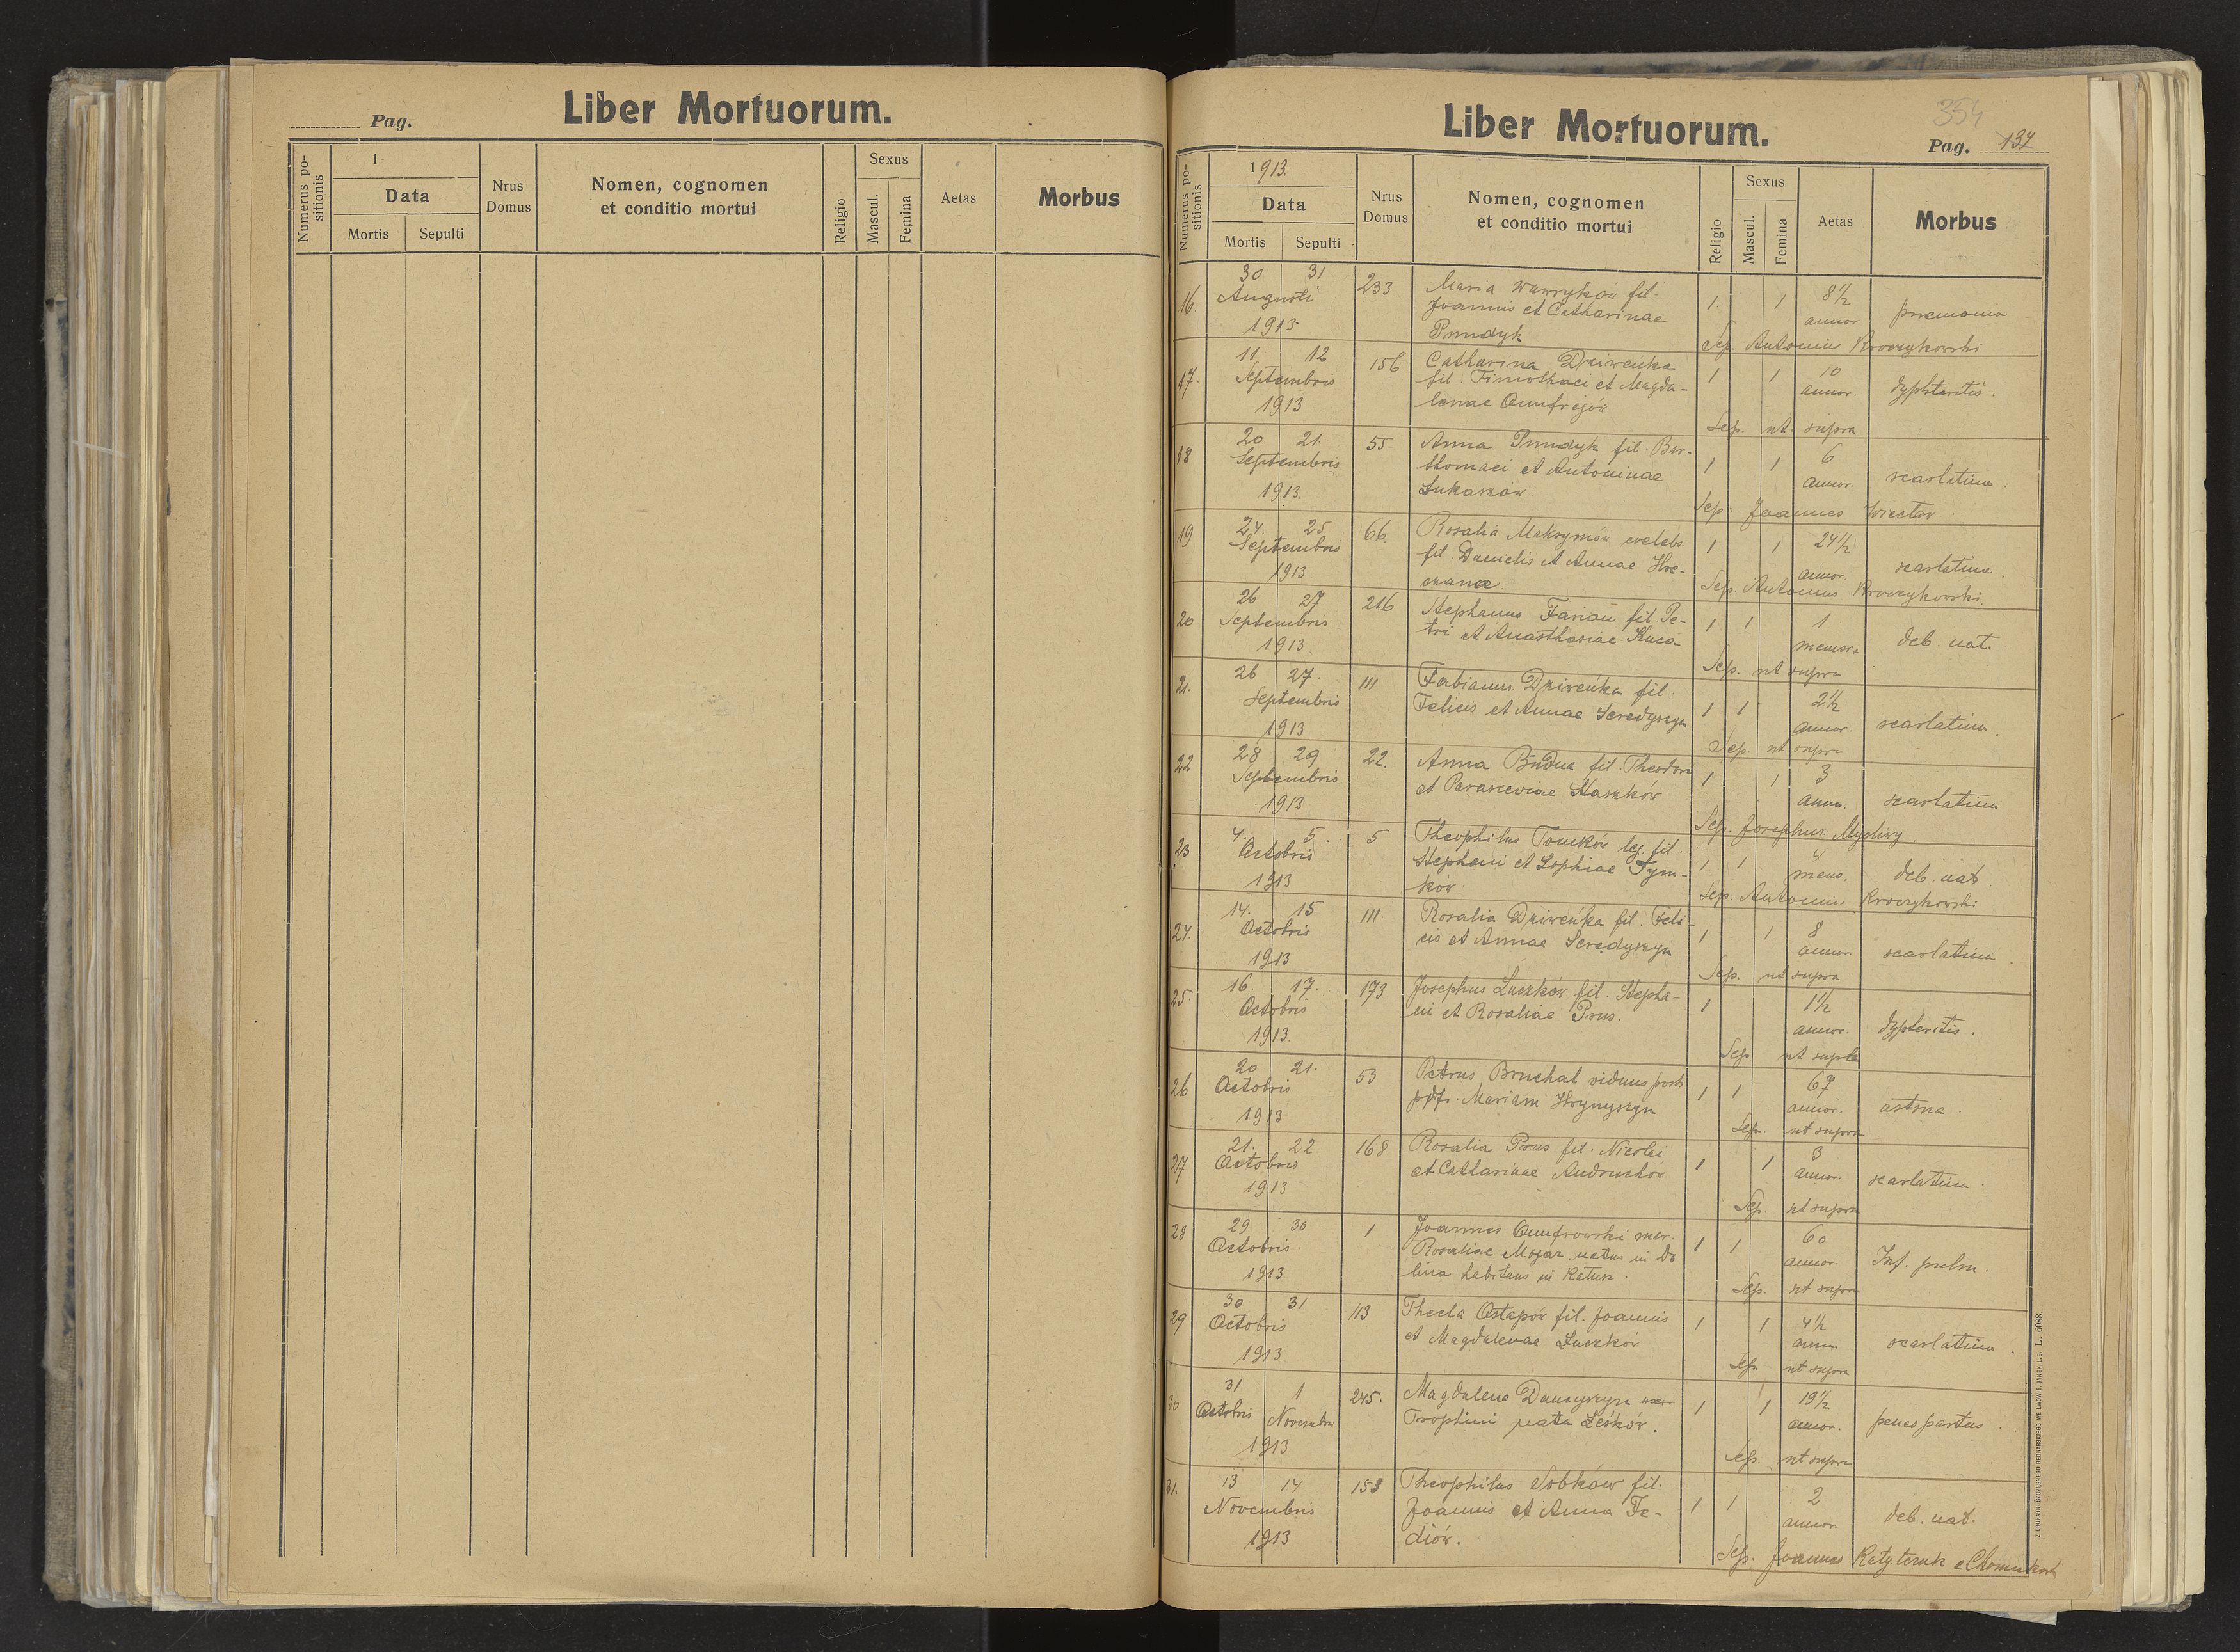 Pag.
Liber Mortuorum.
Numerus positionis
1
Data
Mortis
Sepulti
Nrus Domus
Nomen, cognomen
et conditio mortui
Religio
Sexus
Mascul.
Femina
Aetas
Morbus
354
Liber Mortuorum.
Pag. 137
Numerus positionis
1913.
Data
Mortis
Sepulti
Nrus Domus
Nomen, cognomen
et conditio mortui
Religio
Sexus
Mascul.
Femina
Aetas
Morbus
16. 30 31 233 Maria Wawryków fil. 1. 1 8½
Augusti Joannis et Catharinae annor
1913 Prundyk
Sep. Antonius Kroczykowski
17. 11 12 156 Catharina Dziweńka 1 1 10
Septembris fil. Timothaei et Magda- annor. dyphteritis.
1913 lenae Onufrejów
Sep. ut supra
18 20 21. 55 Anna Prundyk fil. Bar- 1 1 6
Septembris thomaei et Antoninae annor. scarlatina.
1913. Łukasków
Sep. Joannes
19 24. 25 66. Rosalia Maksymów coelebs 1 1 24½
Septembris fil. Danielis et Annae Hre- annor. scarlatina.
1913
Sep. Antonius Kroczykowski
20 26 27 216 Stephanus Farian fil. Pe- 1 1 1
Septembris tri et Anasthasiae Kuca mensis deb. nat.
1913
Sep. ut supra
21. 26 27. 111 Fabianus Dziweńka fil. 1 1 2½
Septembris Felicis et Annae Seredyszyn annor. scarlatina.
1913
Sep. ut supra
22 28 29 22. Anna Budua fil. Theodori 1 1 3
Septembris et Parasceviae Staszków annor. scarlatina
1913
Sep. Josephus Myśliwy
23 4. 5. 5 Theophilus Tomków leg. fil. 1 1 4
Octobris Stephani et Sophiae Tym- mens. deb. nat.
1913 ków.
Sep. Antonius Kroczykowski
24. 14. 15 111. Rosalia Dziweńka fil. Feli- 1 1 8
Octobris cis et Annae Seredyszyn annor. scarlatina.
1913
Sep. ut supra
25. 16. 17. 173 Josephus Łuczków fil. Stepha- 1 1½
Octobris ni et Rosaliae Prus. annor. dypteritis.
1913
Sep. ut supra
26 20 21. 53 Petrus Bruchal viduus post 1 1 67
Octobris Mariam Hrynyszyn annor. astma.
1913
Sep. ut supra
27 21. 22 168 Rosalia Prus fil. Nicolai 1 1 3
Octobris et Catharinae Andruchów annor. scarlatina.
1913
Sep. ut supra
28 29 30 1 Joannes Onufrowski mar. 1 1 60
Octobris Rosaliae Mazar. natus in Do annor. Inf. pulm.
1913 lina habitans in Katusz.
Sep. ut supra
29 30 31 113 Thecla Ostapów fil. Joannis 1 1 4½
Octobris et Magdalenae Łuczków annor scarlatina.
1913
Sep. ut supra
30 31 1 245. Magdalena Dancyszyn uxor 1 1 19½
Octobris Novembris Trophimi nata Leśków. annor. penes partus.
1913
Sep. ut supra
31. 13 14 153 Theophilus Sobków fil. 1 1 2
Novembris Joannis et Anna Fe- annor deb. nat.
1913 diów.
Sep. Joannes
Z DRUKARNI SZCZĘSNEGO BEDNARSKIEGO WE LWOWIE, RYNEK, L. 9. L. 6088.